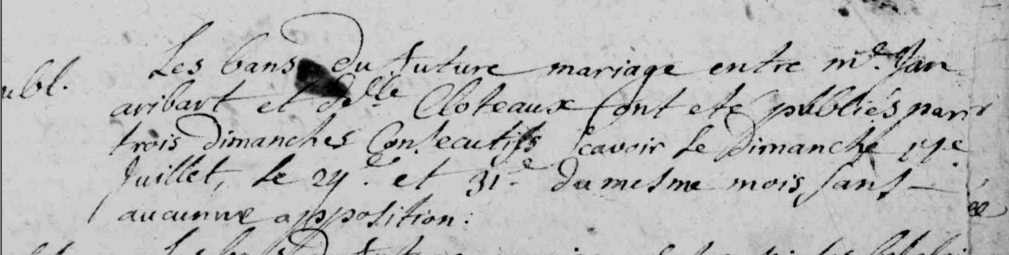 Les bans du future mariage entre mr. Jan
ubl.
aribart et delle Cloteaux sont eté publiés par
trois Dimanches Consecutifs scavoir le Dimanche 17e
Juillet, le 24e et 31e du mesme mois sans
aucunne apposition: